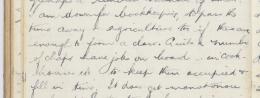 I am down for bookkeeping, to pass the
time away & agriculture if there are
enough to form a class. Quite a number
of chaps have jobs on board - as cook
to keep them occupied &
fill in time. It does get monotonous